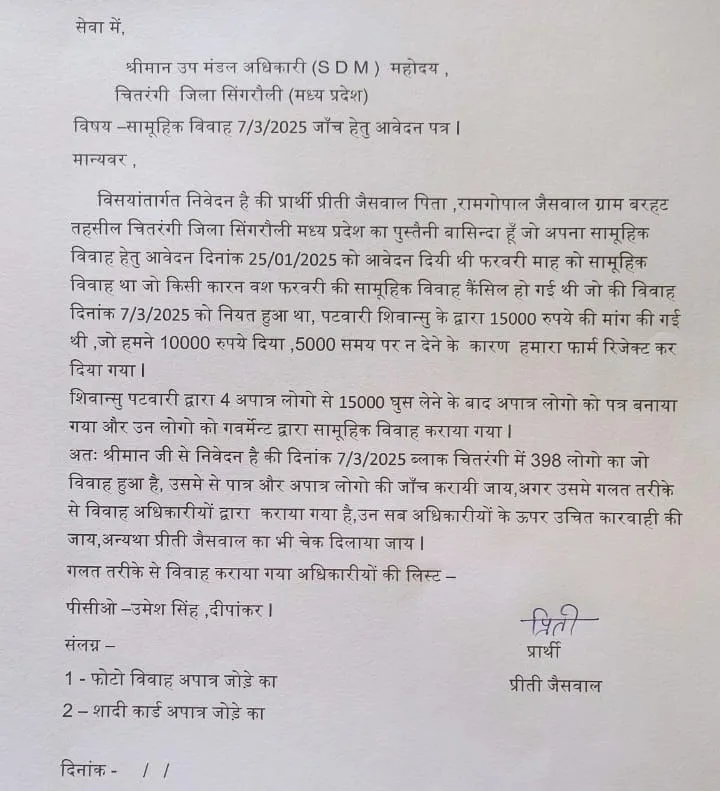 सेवा में,
श्रीमान उप मंडल अधिकारी (S D M ) महोदय ,
चितरंगी जिला सिंगरौली (मध्य प्रदेश)
विषय –सामूहिक विवाह 7/3/2025 जाँच हेतु आवेदन पत्र |
मान्यवर ,
विसयांतार्गत निवेदन है की प्रार्थी प्रीती जैसवाल पिता ,रामगोपाल जैसवाल ग्राम बरहट
तहसील चितरंगी जिला सिंगरौली मध्य प्रदेश का पुस्तैनी बासिन्दा हूँ जो अपना सामूहिक
विवाह हेतु आवेदन दिनांक 25/01/2025 को आवेदन दियी थी फरवरी माह को सामूहिक
विवाह था जो किसी कारन वश फरवरी की सामूहिक विवाह कैंसिल हो गई थी जो की विवाह
दिनांक 7/3/2025 को नियत हुआ था, पटवारी शिवान्सु के द्वारा 15000 रुपये की मांग की गई
थी ,जो हमने 10000 रुपये दिया ,5000 समय पर न देने के कारण हमारा फार्म रिजेक्ट कर
दिया गया |
शिवान्सु पटवारी द्वारा 4 अपात्र लोगो से 15000 घुस लेने के बाद अपात्र लोगो को पत्र बनाया
गया और उन लोगो को गवर्मेन्ट द्वारा सामूहिक विवाह कराया गया |
अतः श्रीमान जी से निवेदन है की दिनांक 7/3/2025 ब्लाक चितरंगी में 398 लोगो का जो
विवाह हुआ है, उसमे से पात्र और अपात्र लोगो की जाँच करायी जाय,अगर उसमे गलत तरीके
से विवाह अधिकारीयों द्वारा कराया गया है,उन सब अधिकारीयों के ऊपर उचित कारवाही की
जाय,अन्यथा प्रीती जैसवाल का भी चेक दिलाया जाय |
गलत तरीके से विवाह कराया गया अधिकारीयों की लिस्ट –
पीसीओ –उमेश सिंह ,दीपांकर |
संलग्न –
1 - फोटो विवाह अपात्र जोड़े का
2 – शादी कार्ड अपात्र जोड़े का
प्रिती
प्रार्थी
प्रीती जैसवाल
दिनांक - / /